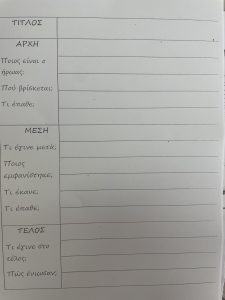 ΤΙΤΛΟΣ
ΑΡΧΗ
Ποιος είναι ο
ήρωας;
Πού βρίσκεται;
Τι έπαθε;
ΜΕΣΗ
Τι έγινε μετά;
Ποιος
εμφανίστηκε;
Τι έκανε;
Τι έπαθε;
ΤΕΛΟΣ
Τι έγινε στο
τέλος;
Πώς ένιωσαν;